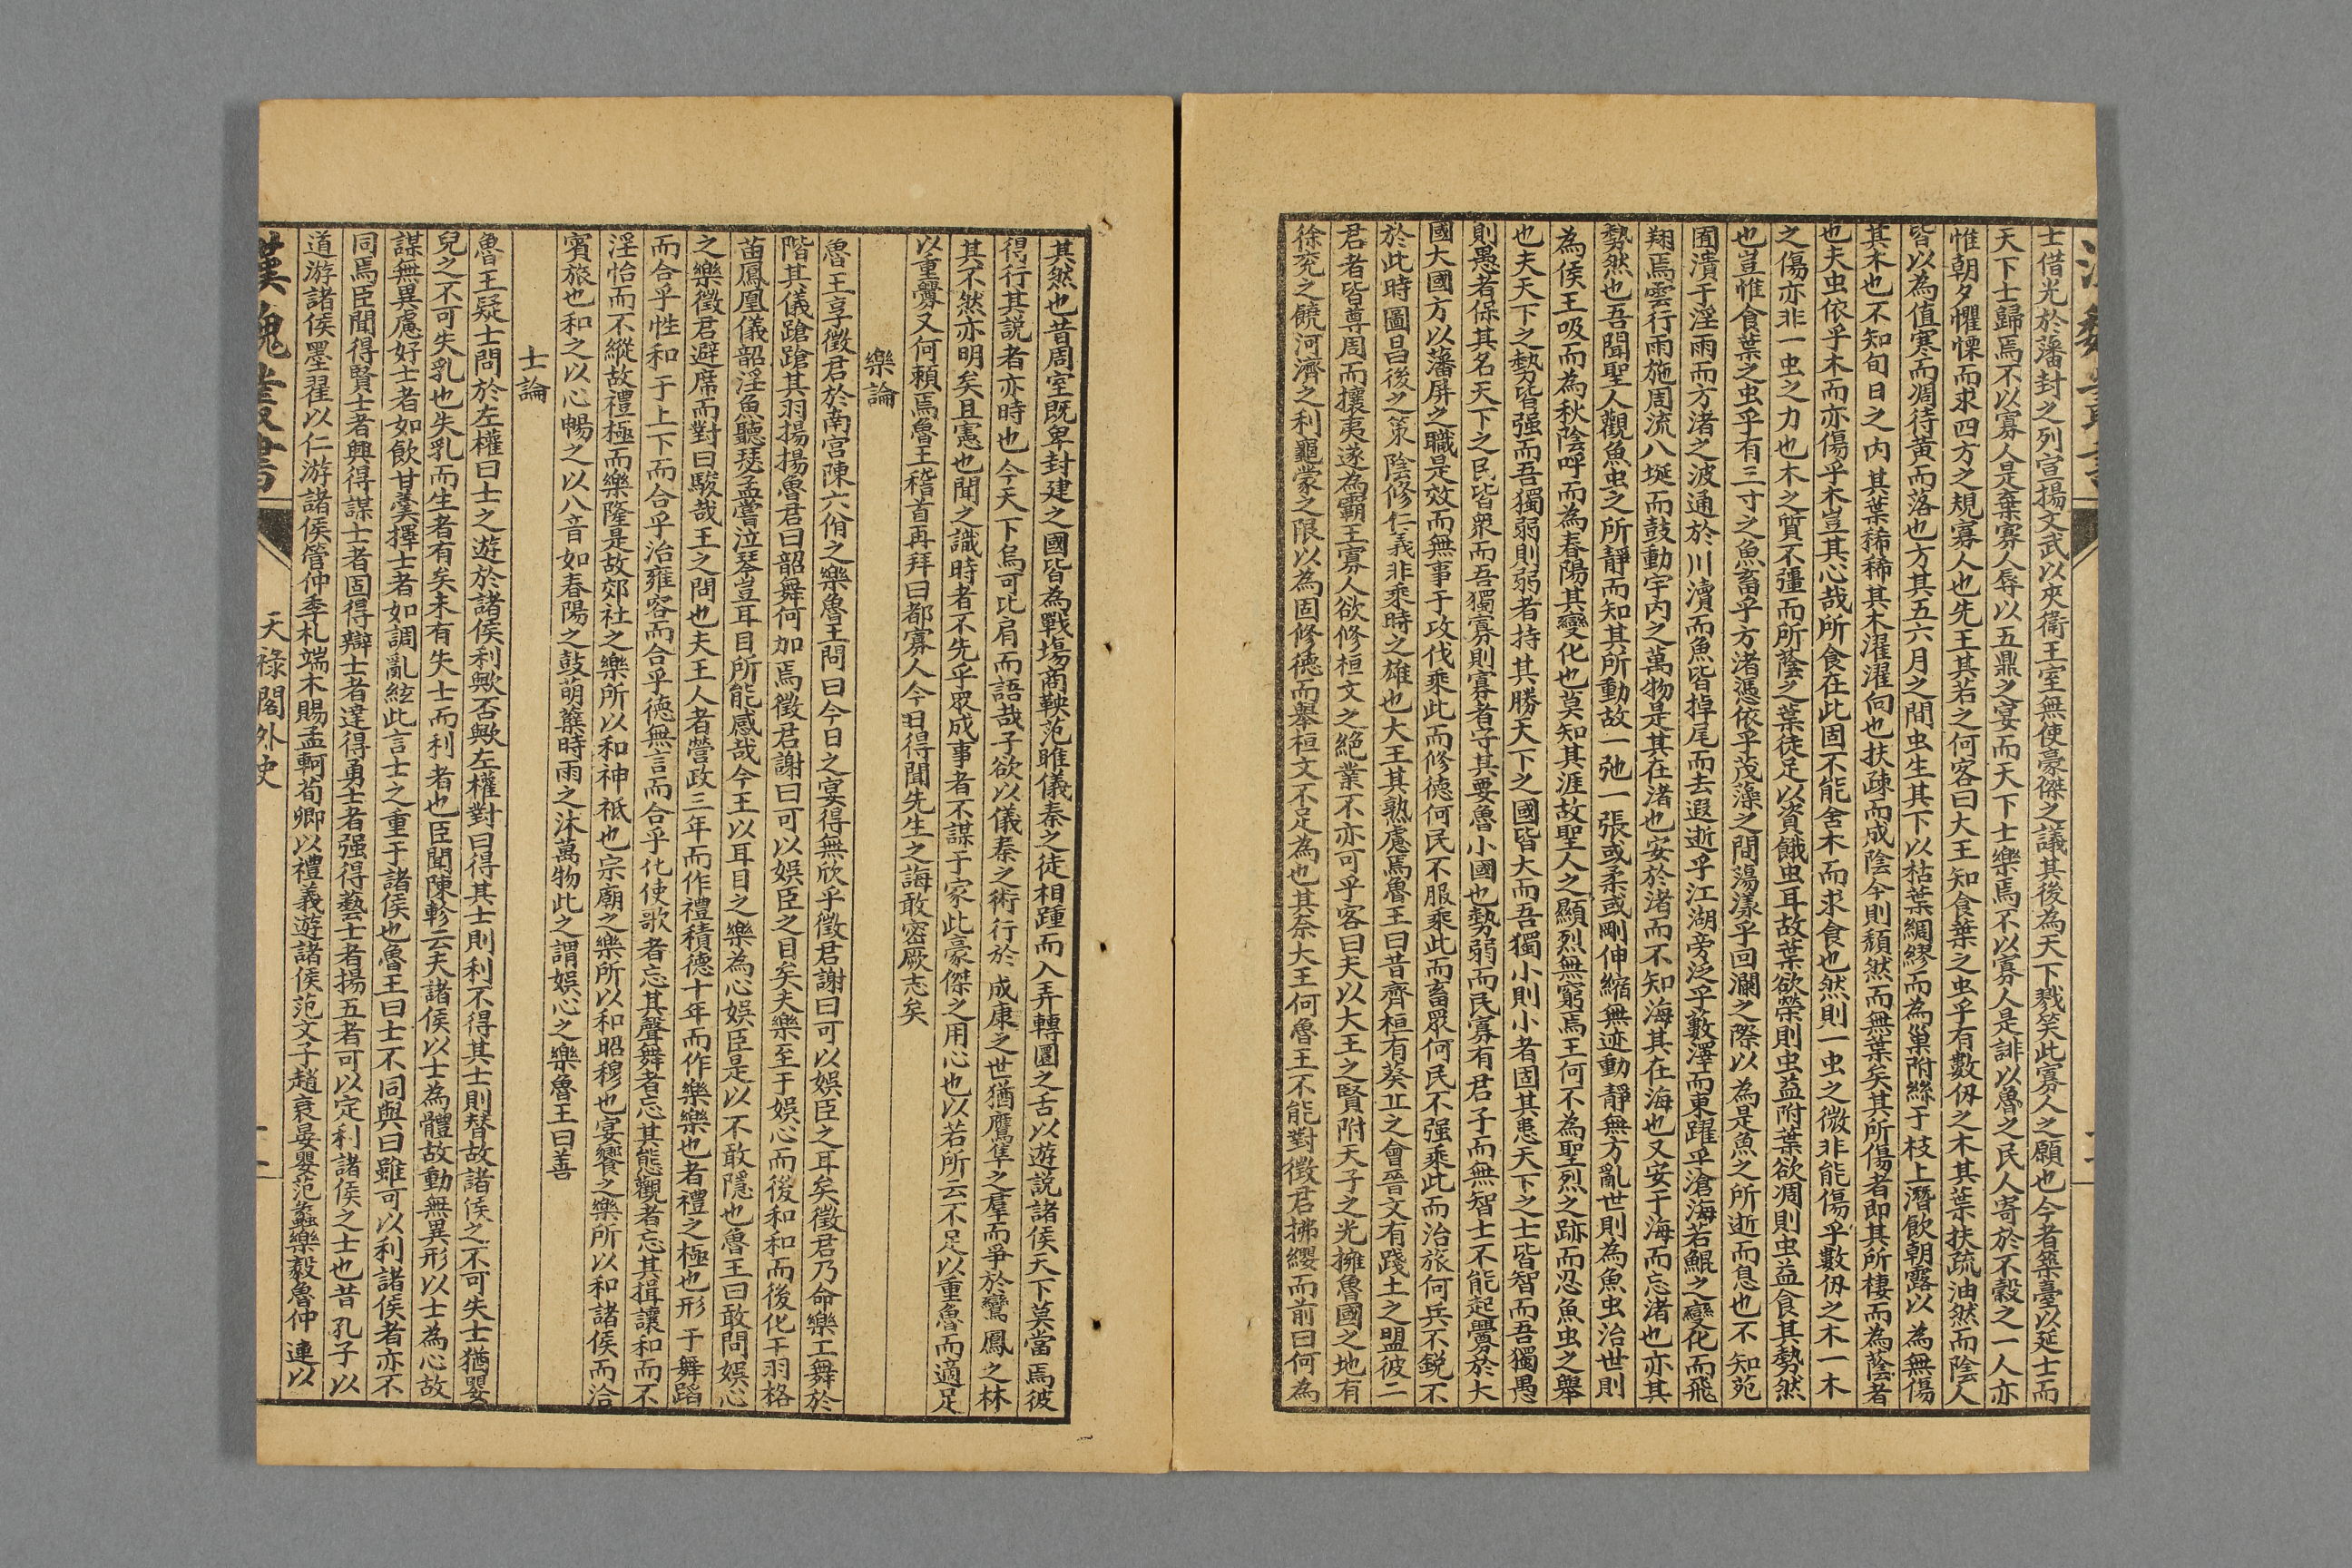 士借光於藩封之列宣揚文武以夾衛王室無使豪傑之議其後為天下戮笑此寡人之願也今者築臺以延士而
天下士歸焉不以寡人是棄寡人辱以五鼎之宴而天下士樂焉不以寡人是誹以魯之民人寄於不穀之一人亦
惟朝夕懼慄而求四方之規寡人也先王其若之何客曰大王知食葉之虫乎有數仭之木其葉扶疏油然而陰人
皆以為值寒而凋待黃而落也方其五六月之間虫生其下以枯葉綢繆而為巢附絲于枝上潛飲朝露以為無傷
其木也不知旬日之內其葉稀稀其木濯濯向也扶疎而成陰今則頹然而無葉矣其所傷者即其所棲而為蔭者
也夫虫依乎木而亦傷乎木豈其心哉所食在此固不能舍木而求食也然則一虫之微非能傷乎數仭之木一木
之傷亦非一虫之力也木之質不彊而所蔭之葉徒足以資餓虫耳故葉欲榮則虫益附葉欲凋則虫益食其勢然
也豈惟食葉之虫乎有三寸之魚畜乎方渚憑依乎茂藻之間蕩漾乎回瀾之際以為是魚之所逝而息也不知苑
囿潰于淫雨而方渚之波通於川瀆而魚皆掉尾而去遐逝乎江湖旁泛乎藪澤而東躍乎滄海若鯤之變化而飛
翔焉雲行雨施周流八埏而鼓動宇內之萬物是其在渚也安於渚而不知海其在海也又安于海而忘渚也亦其
勢然也吾聞聖人觀魚虫之所靜而知其所動故一弛一張或柔或剛伸縮無迹動靜無方亂世則為魚虫治世則
為侯王吸而為秋陰呼而為春陽其變化也莫知其涯故聖人之顯烈無窮焉王何不為聖烈之跡而忍魚虫之舉
也夫天下之勢皆强而吾獨弱則弱者持其勝天下之國皆大而吾獨小則小者固其患天下之士皆智而吾獨愚
則愚者保其名天下之民皆衆而吾獨寡則寡者守其要魯小國也勢弱而民寡有君子而無智士不能起釁於大
國大國方以藩屏之職是效而無事于攻伐乘此而修德何民不服乘此而畜眾何民不强乘此而治旅何兵不銳不
於此時圖昌後之策陰修仁義非乘時之雄也大王其熟慮焉魯王曰昔齊桓有葵丘之會晉文有踐土之盟彼二
君者皆尊周而攘夷遂為霸王寡人欲修桓文之絕業不亦可乎客曰夫以大王之賢附天子之光擁魯國之地有
徐兖之饒河濟之利龜蒙之限以為固修德而舉桓文不足為也其奈大王何魯王不能對徵君拂纓而前曰何為
其然也昔周室既卑封建之國皆為戰塲商鞅范雎儀秦之徒相踵而入弄轉圜之舌以遊説諸侯天下莫當焉彼
得行其説者亦時也今天下烏可比肩而語哉子欲以儀秦之術行於成康之世猶鷹隼之羣而爭於鸞鳳之林
其不然亦明矣且憲也聞之識時者不先乎眾成事者不謀于家此豪傑之用心也以若所云不足以重魯而適足
以重釁又何賴焉魯王稽首再拜曰都寡人今日得聞先生之誨敢密厥志矣
樂論
魯王享徵君於南宮陳六佾之樂魯王問曰今日之宴得無欣乎徵君謝曰可以娛臣之耳矣徵君乃命樂工舞於
階其儀蹌蹌其羽揚揚魯君曰韶舞何加焉徵君謝曰可以娱臣之目矣夫樂至于娱心而後和和而後化干羽格
苗鳳凰儀韶淫魚聽瑟孟嘗泣琴豈耳目所能感哉今王以耳目之樂為心娱臣是以不敢隱也魯王曰敢問娱心
之樂徵君避席而對曰駿哉王之問也夫王人者營政三年而作禮積德十年而作樂樂也者禮之極也形于舞蹈
而合乎性和于上下而合乎治雍容而合乎德無言而合乎化使歌者忘其聲舞者忘其態觀者忘其揖讓和而不
淫怡而不縱故禮極而樂隆是故郊社之樂所以和神祇也宗廟之樂所以和昭穆也宴饗之樂所以和諸侯而洽
賓旅也和之以心暢之以八音如春陽之鼓萌蘖時雨之沐萬物此之謂娛心之樂魯王曰善
士論
魯王疑士問於左權曰士之遊於諸侯利歟否歟左權對曰得其士則利不得其士則替故諸侯之不可失士猶嬰
兒之不可失乳也失乳而生者有矣未有失士而利者也臣聞陳軫云夫諸侯以士為體故動無異形以士為心故
謀無異慮好士者如飲甘羹擇士者如調亂絃此言士之重于諸侯也魯王曰士不同與曰雖可以利諸侯者亦不
同焉臣聞得賢士者興得謀士者固得辯士者達得勇士者强得藝士者揚五者可以定利諸侯之士也昔孔子以
道游諸侯墨翟以仁游諸侯管仲季札端木賜孟軻荀卿以禮義遊諸侯范文子趙衰晏嬰范蠡樂毅魯仲連以
漢魏叢書 天祿閣外史